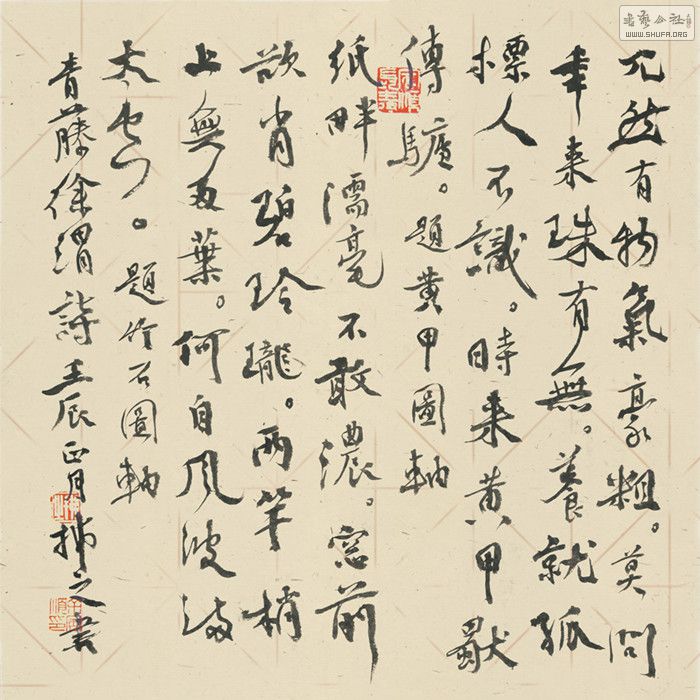 兀然有物氣豪粗。莫問
年来珠有無。養就孤
標人不識。時来黄甲獨
傳臚。題黄甲圖軸
紙畔濡毫不敢濃。窓前
欲肖碧玲瓏。兩竿梢
上無多葉。何自風波滿
太空。題竹石圖軸
青藤徐渭詩壬辰正月拂之書
書藝公社
WWW.SHUFA.ORG